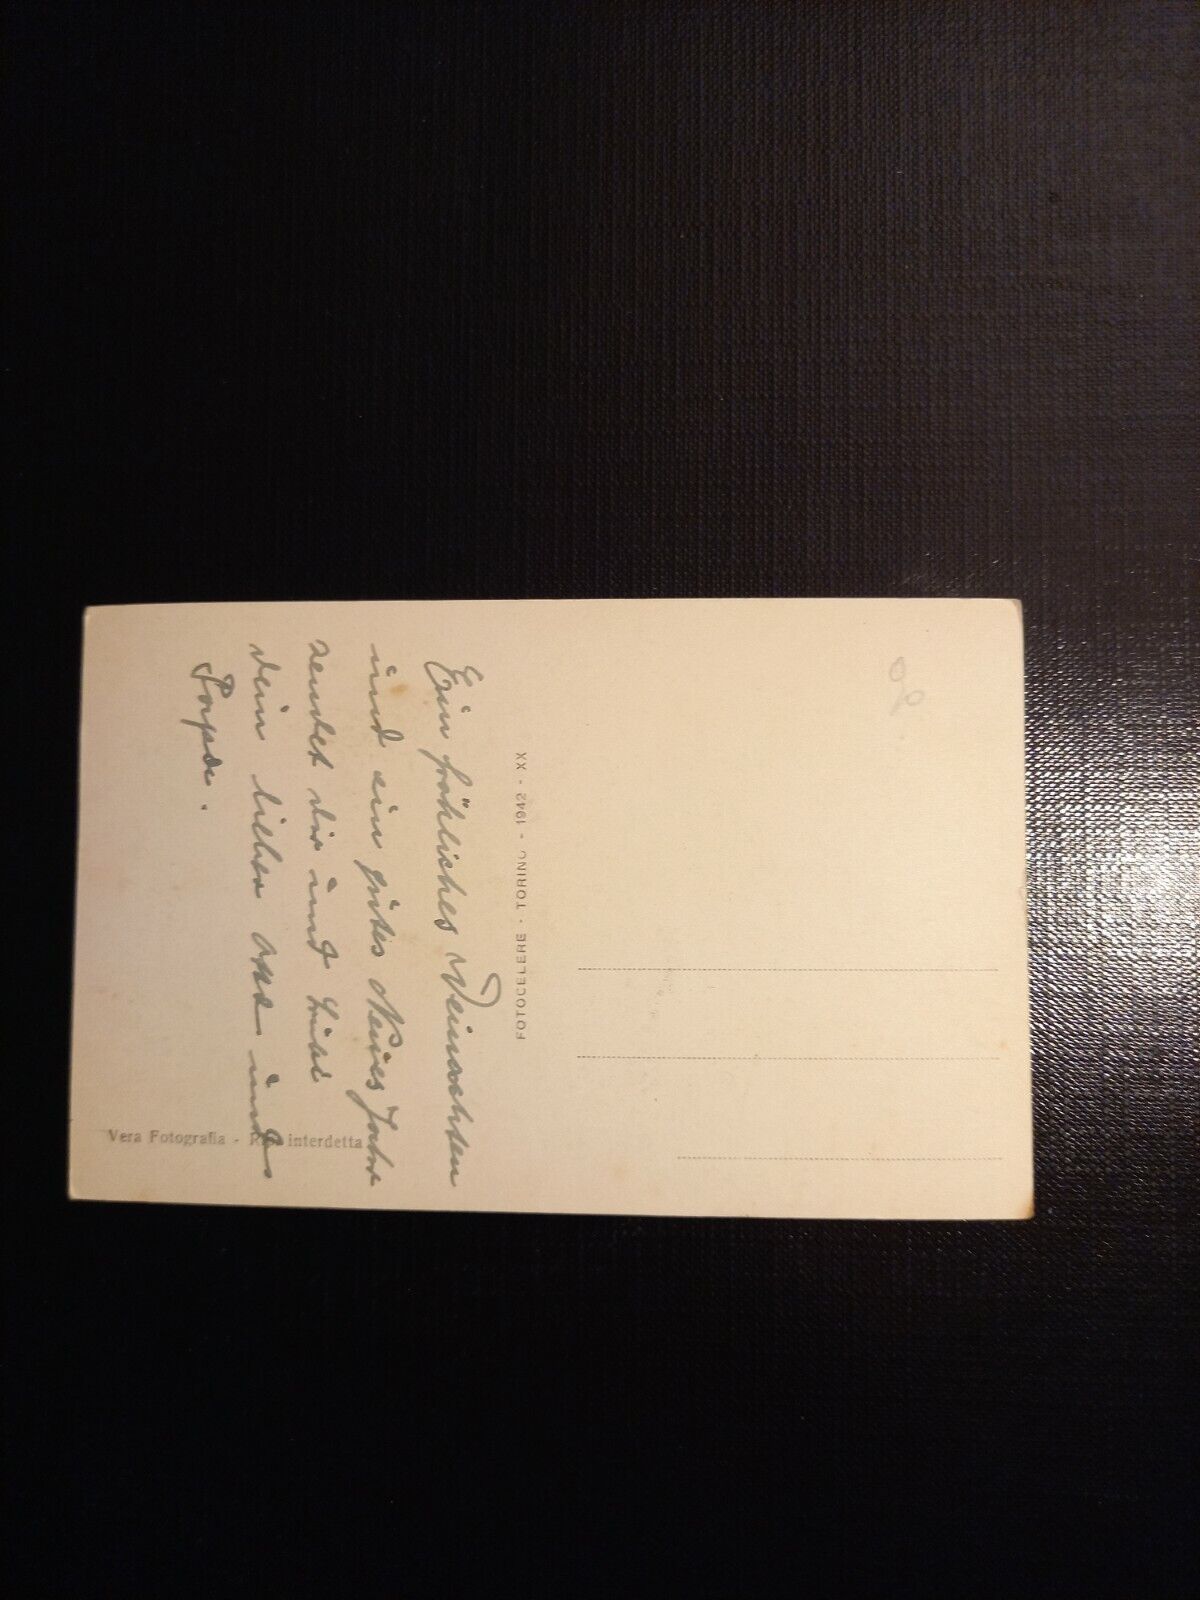 Ein fröhliches Weinachten
und ein gutes Neues Jahr
sendet dir und
dein lieber und
Papa.
FOTOCELERE - TORINO - 1942 - XX
Vera Fotografia - interdetta